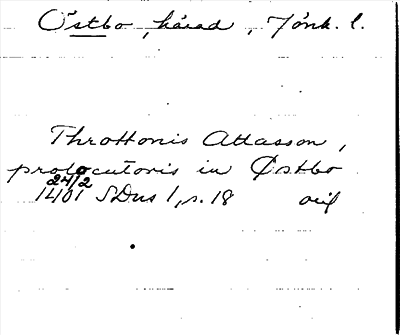 Östbo, härad, Jönk. l.
Throttonis Attasson,
prolocutoris in Østbo
24/2
1401 SDns 1, s. 18 orig